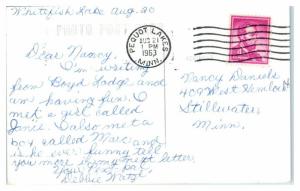 Whitefish Lake Aug. 20
PHOTO POST
PEQUOT LAKES
AUG 21
1 PM
1963
MINN.
Dear Nancy,
I'm writing
from Boyd Lodge and
am having fun. I
met a girl called
Janice. I also met a
boy called Marc and
is he ever funny tell
you more in my next letter.
Your Friend
Debbie
Nancy Daniels
409 West Hemlock
Stillwater
Minn.